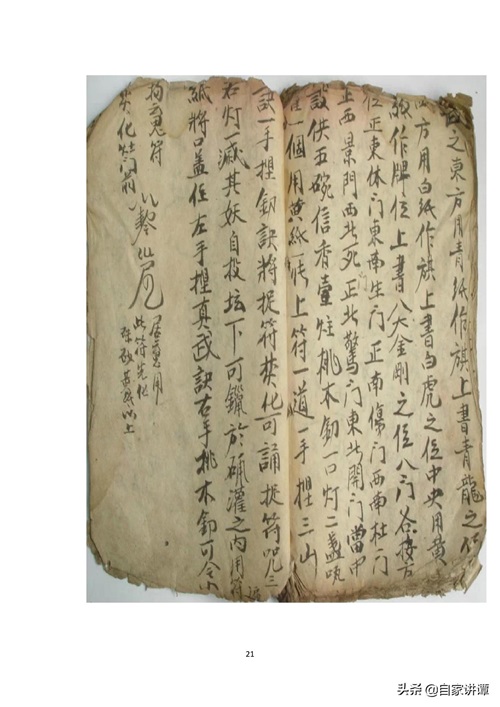 之東方用青紙作旗上書青龍之位
方用白紙作旗上書白虎之位中央用黃
紙作牌位上書八大金剛之位八门各按方
位正東休门東南生门正南傷门西南杜门
正西景门西北死正北驚门東北開门當中
設供五碗信香壹炷桃木劍一口灯二盞
一個用黄紙一張上符一道一手捏三山
訣一手捏劍訣將捉符焚化可誦捉符咒三
右灯一滅其妖自投坛下可鑼於瓶灌之内用符
紙將口盖住左手捏真武訣右手桃木劍可令
符
焚化灶门前
用
此符先化
以上
21
头条 @自家讲谭